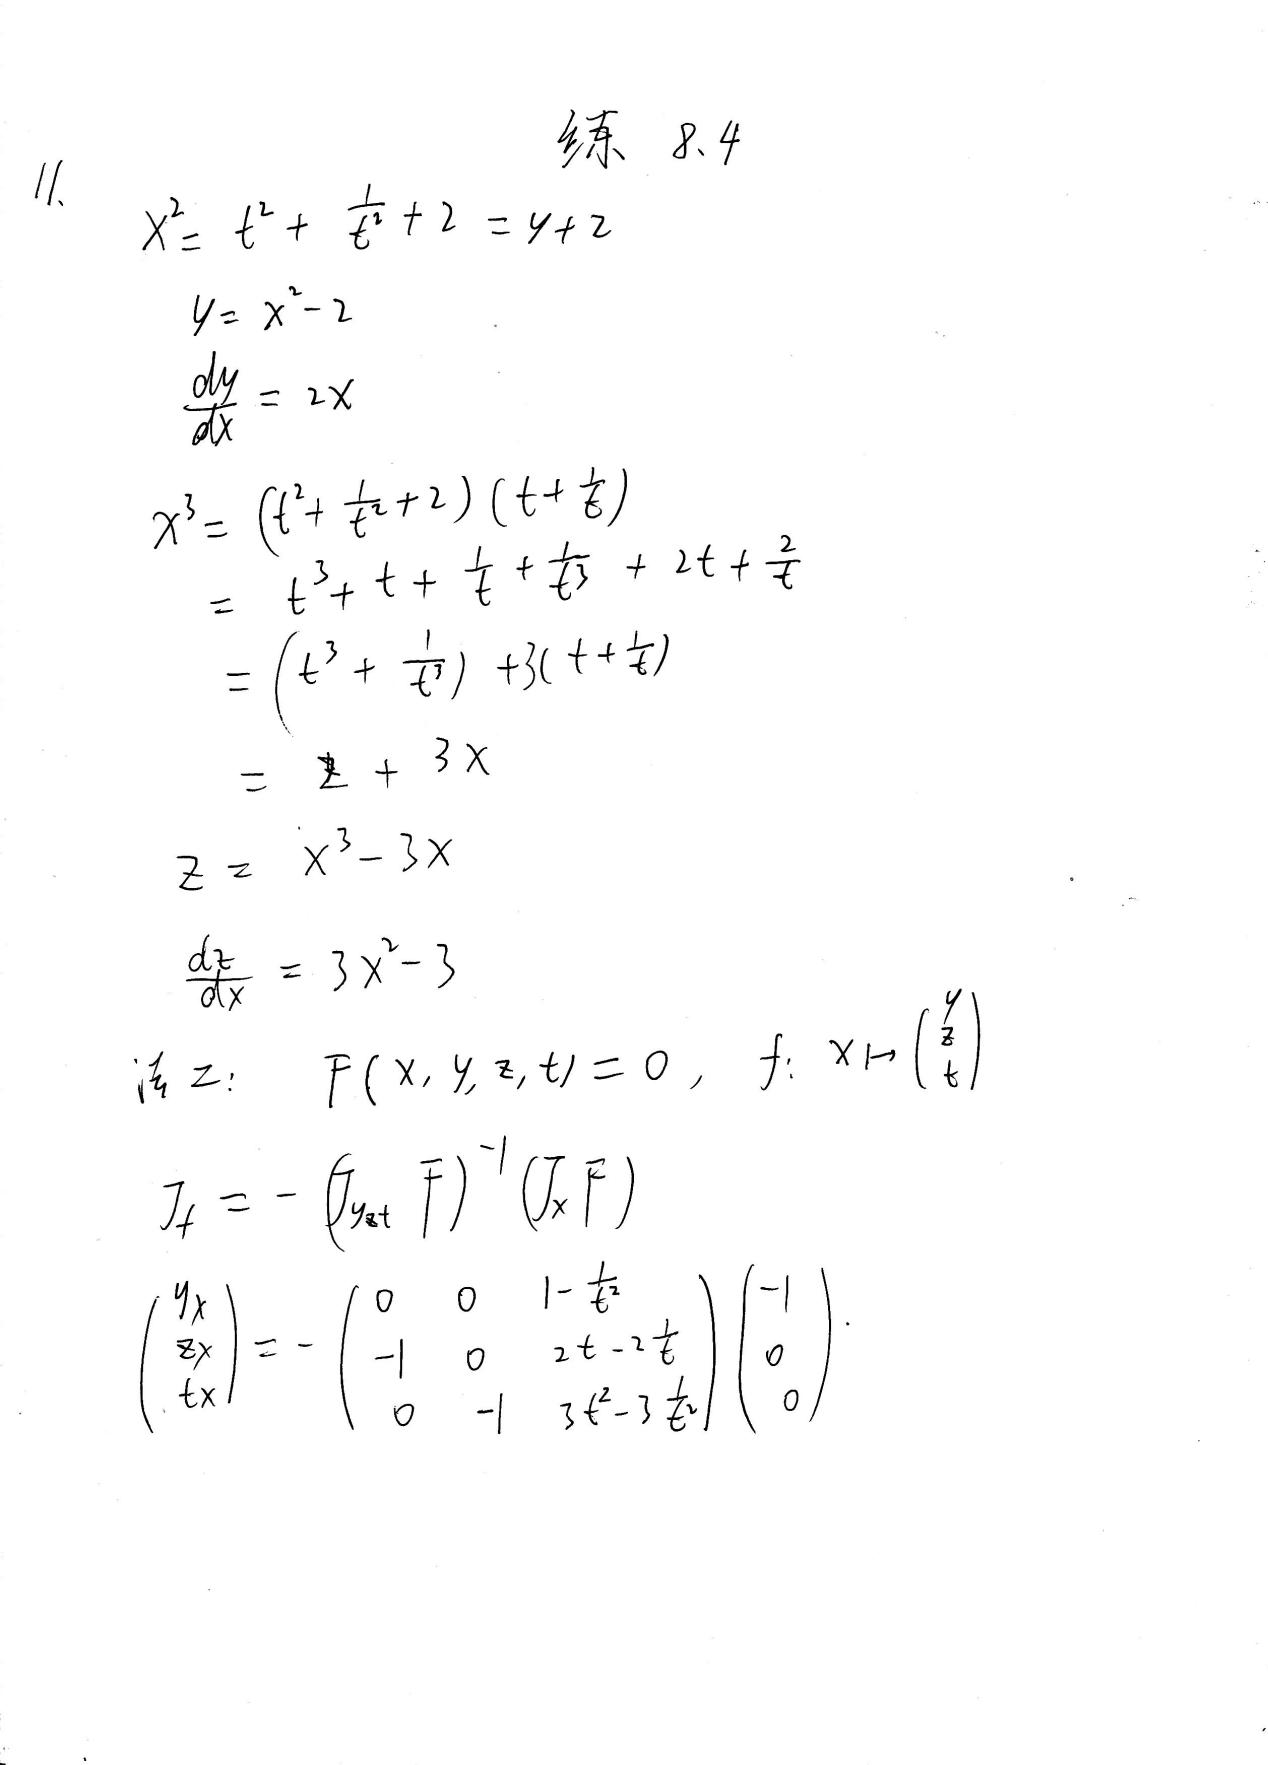 练 8.4
11.
x² = t² + 1/t² + 2 = y+2
y = x² - 2
dy/dx = 2x
x³ = (t² + 1/t² + 2)(t + 1/t)
= t³ + t + 1/t + 1/t³ + 2t + 2/t
= (t³ + 1/t³) + 3(t + 1/t)
= z + 3x
z = x³ - 3x
dz/dx = 3x² - 3
法 2: F(x, y, z, t) = 0, f: x ↦ (y z t)
J_f = -(J_yzt F)⁻¹ (J_x F)
(yx zx tx) = - (0 0 1 - 1/t² ; -1 0 2t - 2 1/t ; 0 -1 3t² - 3 1/t²) (-1 0 0).